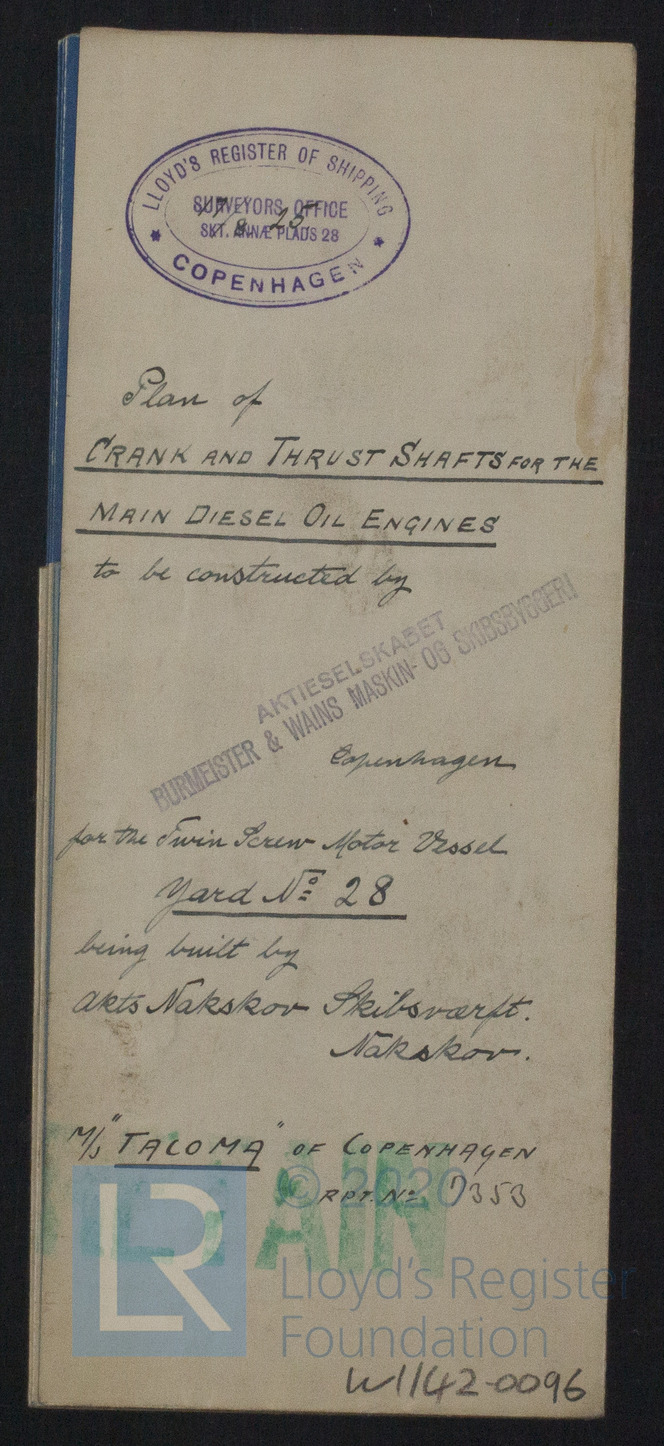 LLOYD'S REGISTER OF SHIPPING
SURVEYORS OFFICE
SKT. ANNÆ PLADS 28
COPENHAGEN
Plan of
CRANK AND THRUST SHAFTS FOR THE
MAIN DIESEL OIL ENGINES
to be constructed by
AKTIESELSKABET
BURMEISTER & WAINS MASKIN- OG SKIBSBYGGERI
Copenhagen
for the Twin Screw Motor Vessel
Yard No 28
being built by
Akts Nakskov Skibsværft.
Nakskov.
M/S "TACOMA" OF COPENHAGEN
RPT. No 7353
© 2020
LR
Lloyd's Register
Foundation
W1142-0096